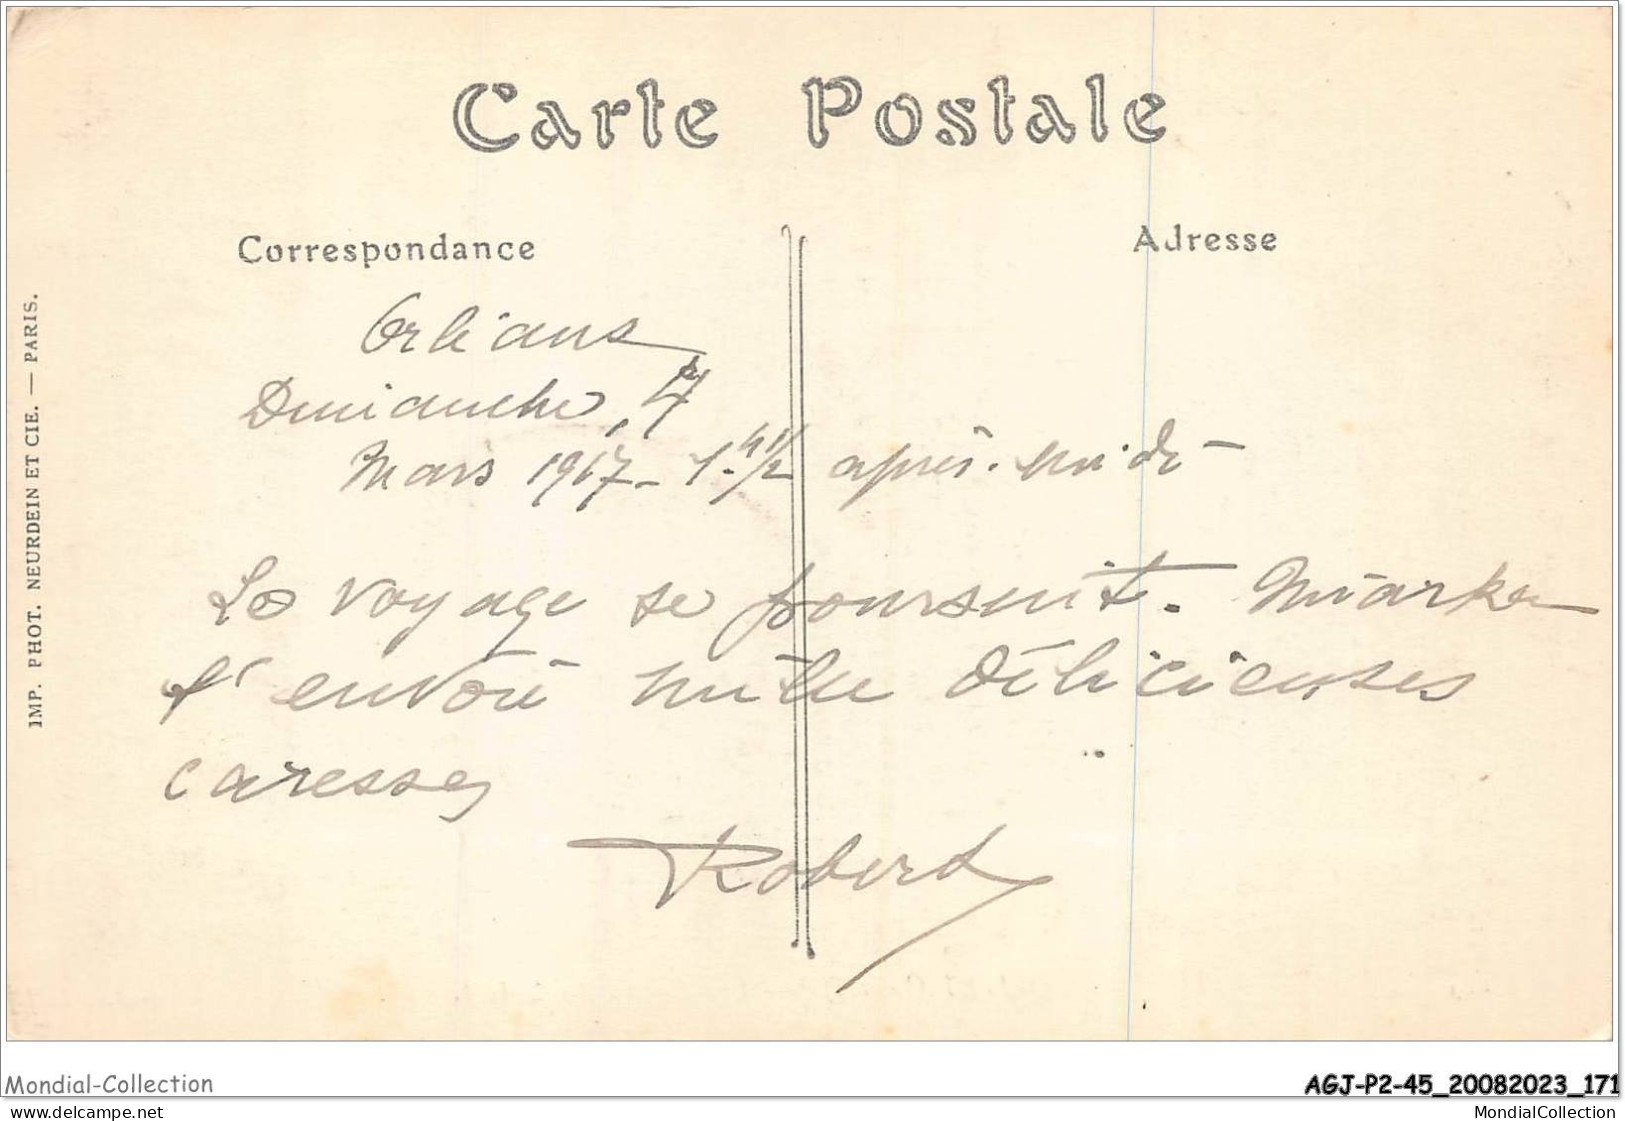 Carte Postale
Correspondance
Adresse
IMP. PHOT. NEURDEIN ET CIE. — PARIS.
Orléans
Dimanche, 4
Mars 1917 - 1.h 1/2 après-midi -
Le voyage se poursuit.
t'envoie mille délicieuses
caresses
Robert
Mondial-Collection
AGJ-P2-45_20082023_171
www.delcampe.net
MondialCollection